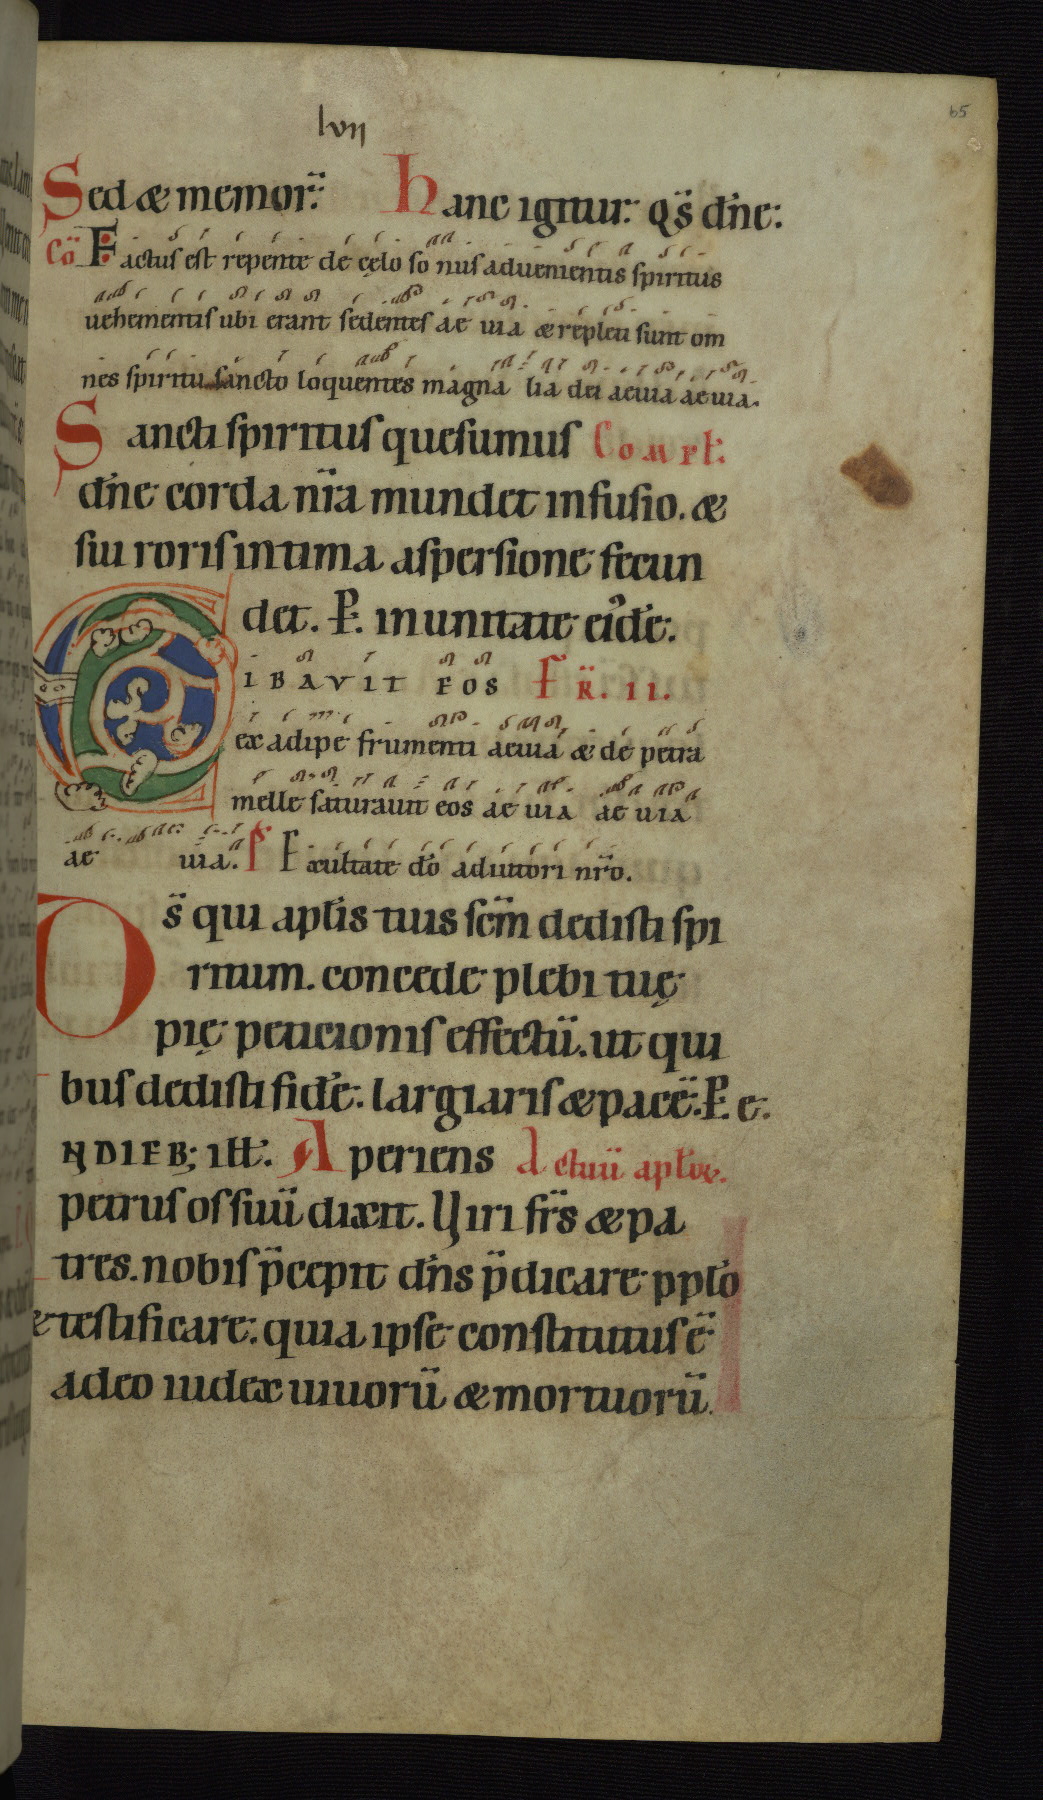 lvii
65
Sed & memor̄: Hanc igitur: Qs̄ dn̄e:
Cō Factus est repente de cęlo sonus advenientis spiritus
uehementis ubi erant sedentes aeuia & repleti sunt om
nes spiritu sancto loquentes magna lia dei aeuia aeuia.
Sancti spiritus quesumus Com pl̄:
dn̄e corda nr̄a mundet infusio. &
sui roris intima aspersione fecun
det. P. in unitate eiđe.
CIBAVIT EOS FR̄. II.
ex adipe frumenti aeuia & de petra
melle saturauit eos aeuia aeuia
aeuia. P̄s Exultate dō adiutori nr̄o.
Ds̄ qui apl̄is tuis scm̄ dedisti spi
ritum. concede plebi tuę
pię peticionis effectū. ut qui
bus dedisti fidē. largiaris & pacē. P. e.
NDIEB; ill̄: Aperiens Actuū apl̄oꝝ.
petrus os suū dixit. Uiri fr̄s & pa
tres. nobis p̄cepit dn̄s p̄dicare ppl̄o
& testificare: quia ipse constitutus ē
a deo iudex uiuorū & mortuorū.